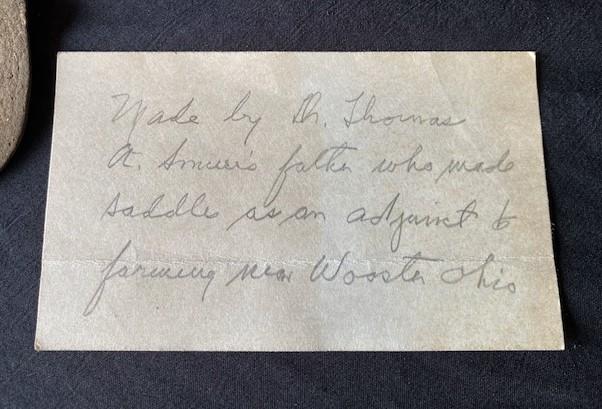 Made by Dr. Thomas
A. father who made
saddles as an adjunct to
farming near Wooster Ohio